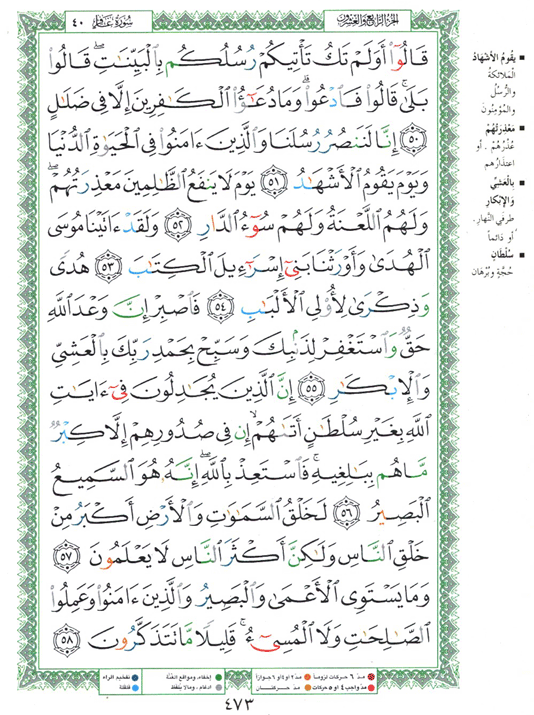 سُورَةُ غَافِرٍ ٤٠
الجزء الرابع والعشرون
قَالُوٓا۟ أَوَلَمْ تَكُ تَأْتِيكُمْ رُسُلُكُم بِٱلْبَيِّنَٰتِ ۖ قَالُوا۟
بَلَىٰ ۚ قَالُوا۟ فَٱدْعُوا۟ ۗ وَمَا دُعَٰٓؤُا۟ ٱلْكَٰفِرِينَ إِلَّا فِى ضَلَٰلٍ
٥٠ إِنَّا لَنَنصُرُ رُسُلَنَا وَٱلَّذِينَ ءَامَنُوا۟ فِى ٱلْحَيَوٰةِ ٱلدُّنْيَا
وَيَوْمَ يَقُومُ ٱلْأَشْهَٰدُ ٥١ يَوْمَ لَا يَنفَعُ ٱلظَّٰلِمِينَ مَعْذِرَتُهُمْ ۖ
وَلَهُمُ ٱللَّعْنَةُ وَلَهُمْ سُوٓءُ ٱلدَّارِ ٥٢ وَلَقَدْ ءَاتَيْنَا مُوسَى
ٱلْهُدَىٰ وَأَوْرَثْنَا بَنِىٓ إِسْرَٰٓءِيلَ ٱلْكِتَٰبَ ٥٣ هُدًى
وَذِكْرَىٰ لِأُو۟لِى ٱلْأَلْبَٰبِ ٥٤ فَٱصْبِرْ إِنَّ وَعْدَ ٱللَّهِ
حَقٌّ وَٱسْتَغْفِرْ لِذَنۢبِكَ وَسَبِّحْ بِحَمْدِ رَبِّكَ بِٱلْعَشِىِّ
وَٱلْإِبْكَٰرِ ٥٥ إِنَّ ٱلَّذِينَ يُجَٰدِلُونَ فِىٓ ءَايَٰتِ
ٱللَّهِ بِغَيْرِ سُلْطَٰنٍ أَتَىٰهُمْ ۙ إِن فِى صُدُورِهِمْ إِلَّا كِبْرٌ
مَّا هُم بِبَٰلِغِيهِ ۚ فَٱسْتَعِذْ بِٱللَّهِ ۖ إِنَّهُۥ هُوَ ٱلسَّمِيعُ
ٱلْبَصِيرُ ٥٦ لَخَلْقُ ٱلسَّمَٰوَٰتِ وَٱلْأَرْضِ أَكْبَرُ مِنْ
خَلْقِ ٱلنَّاسِ وَلَٰكِنَّ أَكْثَرَ ٱلنَّاسِ لَا يَعْلَمُونَ ٥٧
وَمَا يَسْتَوِى ٱلْأَعْمَىٰ وَٱلْبَصِيرُ وَٱلَّذِينَ ءَامَنُوا۟ وَعَمِلُوا۟
ٱلصَّٰلِحَٰتِ وَلَا ٱلْمُسِىٓءُ ۚ قَلِيلًا مَّا تَتَذَكَّرُونَ ٥٨
يَقُومُ الأَشْهَادُ
المَلائكةُ
والرُّسُلُ
والمُؤمِنُونَ
مَعْذِرَتُهُمْ
عُذْرُهُمْ . أو
اعتذارُهم
بالعَشِيِّ
والإبْكَارِ
طرفَيِ النَّهارِ
أو دَائماً
سُلْطَانٍ
حُجَّةٍ وبُرْهانٍ
مدّ ٦ حركات لزوماً
مدّ ٢ أو ٤ أو ٦ جوازاً
إخفاء، ومواقع الغُنَّة
تفخيم الراء
مدّ واجب ٤ أو ٥ حركات
مدّ حركتان
إدغام، وما لا يُلفظ
قلقلة
٤٧٣